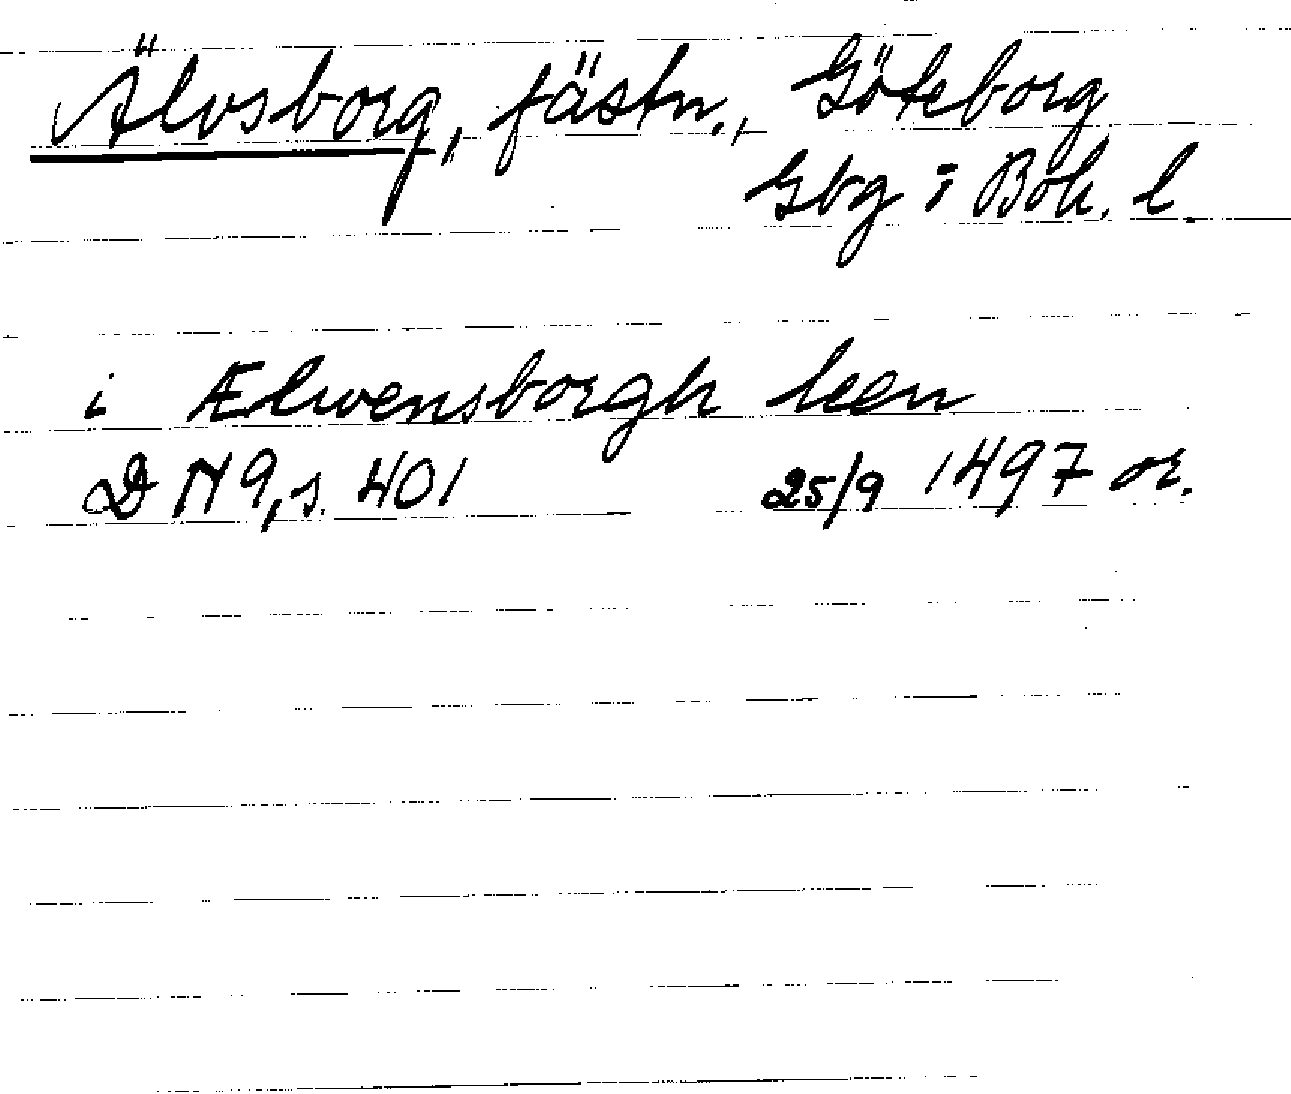 Älvsborg, fästn., Göteborg
Gbg i Boh. l.
i Ælwensborgh leen
DN 9, s. 401 25/9 1497 or.